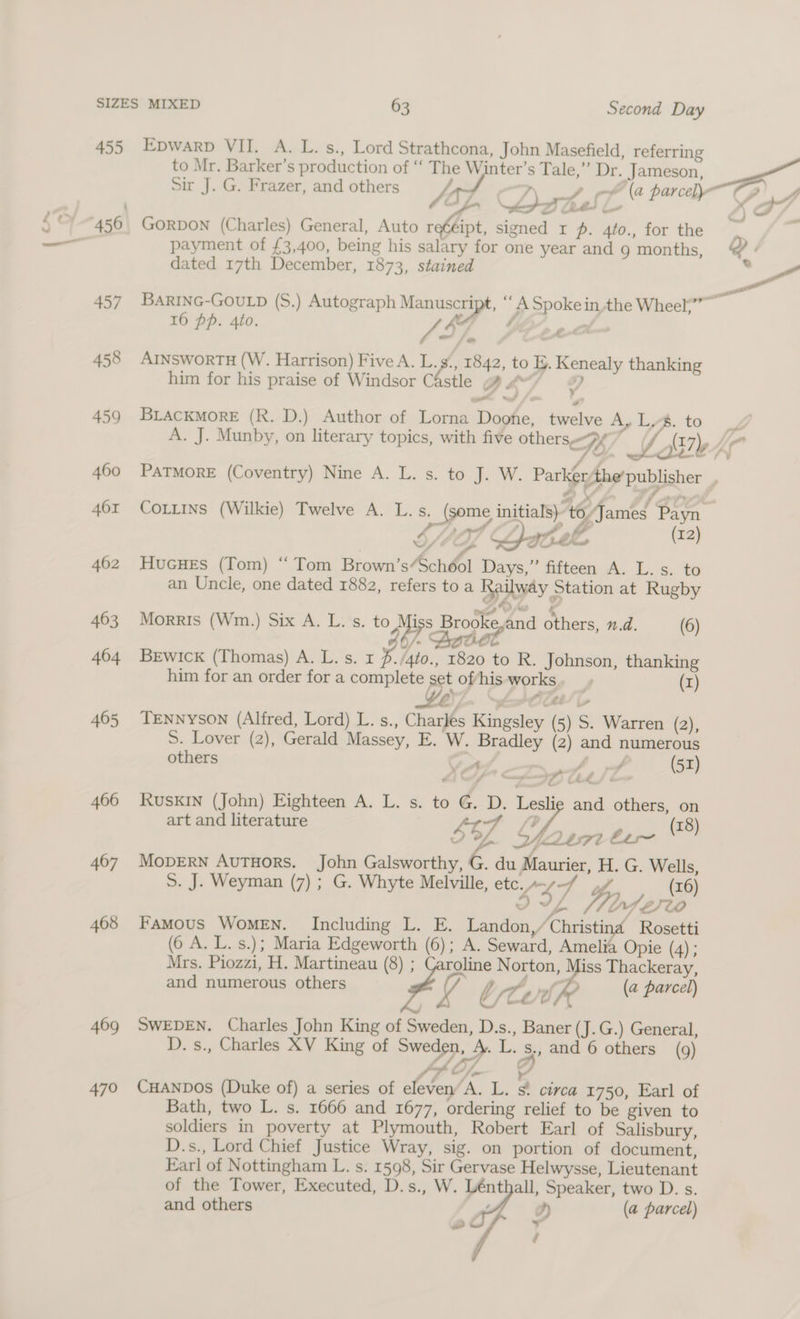 SIZES MIXED 63 Second Day
455 EDWARD VII. A. L. s., Lord Strathcona, John Masefield, referring
to Mr. Barker's production of “ The Winter's Tale,” Dr. Jameson,
Sir J. G. Frazer, and others (a parcel)
456 GORDON (Charles) General, Auto receipt, signed 1 p. 4to., for the
payment of £3,400, being his salary for one year and 9 months,
dated 17th December, 1873, stained
457 BARING-GOULD (S.) Autograph Manuscript, “ A Spoke in the Wheel,”
16 pp. 4to.
458 AINSWORTH (W. Harrison) Five A. L. s., 1842, to E. Kenealy thanking
him for his praise of Windsor Castle
459 BLACKMORE (R. D.) Author of Lorna Doone, twelve A. L. s. to
A. J. Munby, on literary topics, with five others (17)
460 PATMORE (Coventry) Nine A. L. s. to J. W. Parker the publisher
461 COLLINS (Wilkie) Twelve A. L. s. (some initials) to James Payn
(12)
462 HUGHES (Tom) “ Tom Brown's School Days,” fifteen A. L. s. to
an Uncle, one dated 1882, refers to a Railway Station at Rugby
463 MORRIS (Wm.) Six A. L. s. to Miss Brooke, and others, n.d. (6)
464 BEWICK (Thomas) A. L. s. 1 p. 4to., 1820 to R. Johnson, thanking
him for an order for a complete set of his works (1)
465 TENNYSON (Alfred, Lord) L. s., Charles Kingsley (5) S. Warren (2),
S. Lover (2), Gerald Massey, E. W. Bradley (2) and numerous
others (51)
466 RUSKIN (John) Eighteen A. L. s. to G. D. Leslie and others, on
art and literature (18)
467 MODERN AUTHORS. John Galsworthy, G. du Maurier, H. G. Wells,
S. J. Weyman (7) ; G. Whyte Melville, etc. (16)
468 FAMOUS WOMEN. Including L. E. Landon, Christina Rosetti
(6 A. L. s.); Maria Edgeworth (6); A. Seward, Amelia Opie (4);
Mrs. Piozzi, H. Martineau (8) ; Caroline Norton, Miss Thackeray,
and numerous others (a parcel)
469 SWEDEN. Charles John King of Sweden, D.s., Baner (J.G.) General,
D. s., Charles XV King of Sweden, A. L. s., and 6 others (9)
470 CHANDOS (Duke of) a series of eleven A. L. s. circa 1750, Earl of
Bath, two L. s. 1666 and 1677, ordering relief to be given to
soldiers in poverty at Plymouth, Robert Earl of Salisbury,
D.s., Lord Chief Justice Wray, sig. on portion of document,
Earl of Nottingham L. s. 1598, Sir Gervase Helwysse, Lieutenant
of the Tower, Executed, D.s., W. Lénthall, Speaker, two D. s.
and others (a parcel)